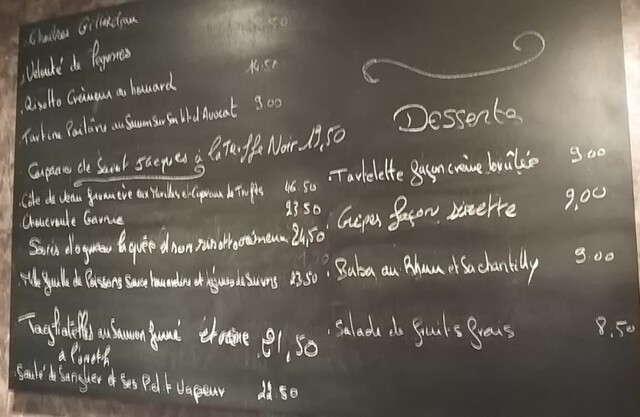 Huîtres Gillardeau
Velouté de légumes
Risotto Crémeux au homard 14.50
Tartine Poilâne au Saumon sur son lit d'Avocat 9.00
Carpaccio de Saint Jacques à la Truffe Noir 19,50
Côte de veau fermière aux Morilles et Copeaux de Truffes 46.50
Choucroute Garnie 23.50
Souris d'agneau laquée et son risotto crémeux 24,50
grillé de Poissons Sauce homardine et légumes de Saisons 23.50
Tagliatelles au Saumon fumé et crème 21,50
à l'aneth
Sauté de Sanglier et Ses Petit Vapeur 22.50
Desserts
Tartelette façon crème brûlée 9.00
Crêpes façon suzette 9,00
Baba au Rhum et Sa chantilly 9.00
Salade de fruits frais 8,50